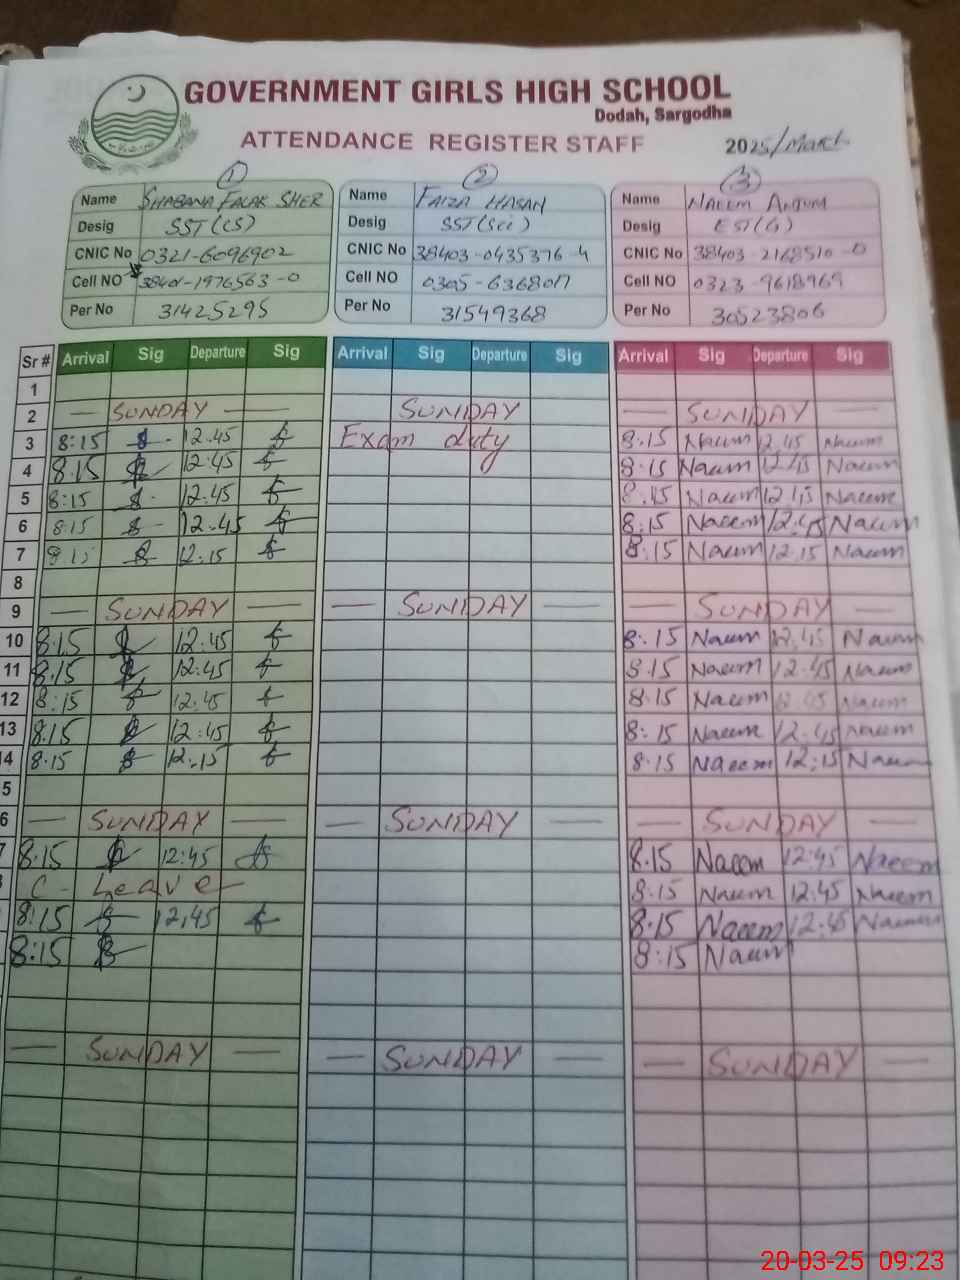 GOVERNMENT GIRLS HIGH SCHOOL
Dodah, Sargodha
ATTENDANCE REGISTER STAFF 2025/March
1 2 3
Name SHABANA FALAK SHER Name FAIZA HASAN Name NAEEM ANJUM
Desig SST(CS) Desig SST(Sci) Desig EST(G)
CNIC No 0321-6096902 CNIC No 38403-0435376-4 CNIC No 38403-2168510-0
Cell NO 38401-1976563-0 Cell NO 0305-6368017 Cell NO 0323-9618969
Per No 31425295 Per No 31549368 Per No 30523806
Sr # Arrival Sig Departure Sig Arrival Sig Departure Sig Arrival Sig Departure Sig
1
2 — SUNDAY — SUNDAY — SUNDAY —
3 8:15 12.45 Exam duty 8.15 Naeem 12.45 Naeem
4 8.15 12:45 8.15 Naeem 12.45 Naeem
5 8:15 12:45 Naeem 12.45 Naeem
6 8:15 12.45 8:15 Naeem 12:45 Naeem
7 8.15 12.15 8.15 Naeem 12.15 Naeem
8
9 — SUNDAY — — SUNDAY — — SUNDAY —
10 8.15 12:45 8:.15 Naeem 12.45 Naeem
11 8.15 12:45 8.15 Naeem 12.45 Naeem
12 8:15 12.45 8.15 Naeem 12.45 Naeem
13 8.15 12:45 8:15 Naeem 12.45 Naeem
14 8.15 12:.15 8.15 Naeem 12:15 Naeem
5
6 — SUNDAY — — SUNDAY — — SUNDAY —
7 8.15 12:45 8.15 Naeem 12:45 Naeem
C- Leave 8.15 Naeem 12:45 Naeem
8:15 12,45 8.15 Naeem 12:45 Naeem
8:15 8:15 Naeem
— SUNDAY — — SUNDAY — — SUNDAY —
20-03-25 09:23